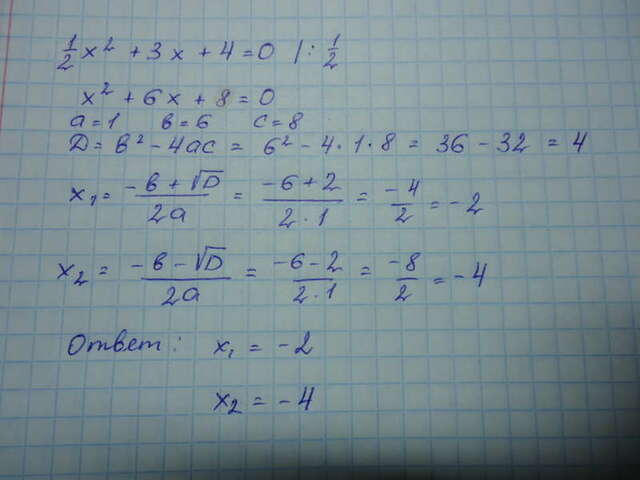 1/2 x² + 3x + 4 = 0 | : 1/2
x² + 6x + 8 = 0
a = 1 в = 6 c = 8
D = в² - 4ac = 6² - 4 · 1 · 8 = 36 - 32 = 4
x₁ = (-в + √D)/(2a) = (-6 + 2)/(2 · 1) = -4/2 = -2
x₂ = (-в - √D)/(2a) = (-6 - 2)/(2 · 1) = -8/2 = -4
Ответ: x₁ = -2
x₂ = -4